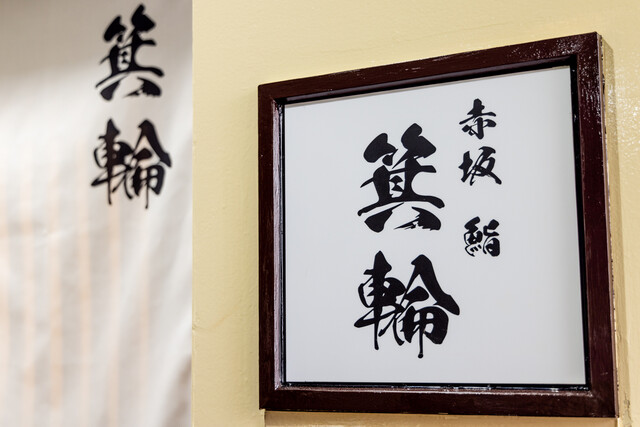 赤坂 鮨
箕輪
箕輪